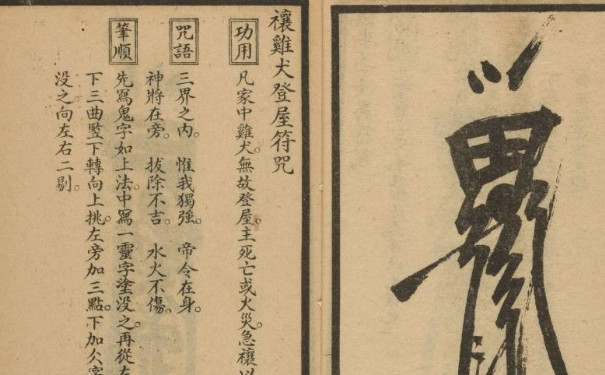 禳雞犬登屋符咒
功用
凡家中雞犬。無故登屋。主死亡或火災。急禳以
咒語
三界之內。惟我獨強。帝令在身。
神將在旁。拔除不吉。水火不傷。
筆順
先寫鬼字如上法。中寫一靈字塗没之。再從左
下三曲竪下轉向上挑。左旁加三點。下加公字
没之。向左右二剔。